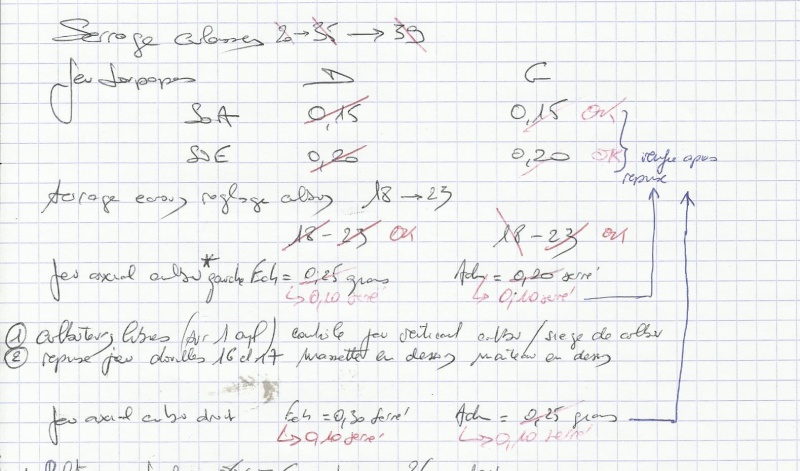 Serrage culasses 20 → 35 → 39
Jeu soupapes D G
SOA 0,15 0,15 OK
SOE 0,20 0,20 OK verifie apres
reprise
serrage ecrous reglage culbus 18 → 23
18 - 23 OK 18 - 23 OK
Jeu axial culbu * gauche Ech = 0,25 gras Adm = 0,20 serré
↳ 0,10 serré ↳ 0,10 serré
① culbuteurs libres (sur 1 cyl) contrôle jeu vertical culbu / siege de culbu
② reprise jeu douilles 16 et 17 massette en dessous marteau en dessus
Jeu axial culbu droit Ech = 0,30 serré Adm = 0,25 gras
↳ 0,10 serré ↳ 0,10 serré